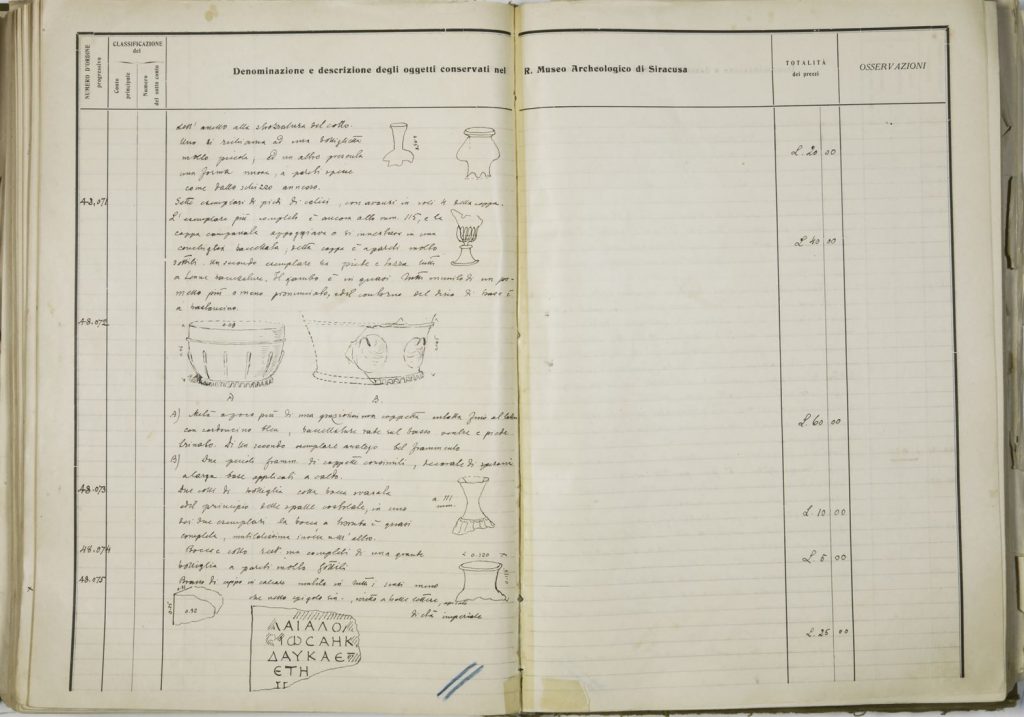 NUMERO D'ORDINE
progressivo
CLASSIFICAZIONE
del
Conto
principale
Numero
del sotto conto
Denominazione e descrizione degli oggetti conservati nel R. Museo Archeologico di Siracusa
TOTALITÀ
dei prezzi
OSSERVAZIONI
alla del collo.
Uno si richiama ad una bottiglietta
molto piccola; ed un altro presenta
una forma nuova, a pareti spesse
come dallo schizzo annesso.
L. 20 00
43.071
Sette esemplari di piedi di calici, con avanzi in soli 4 della coppa.
L'esemplare più completo è ancora alto mm. 115, e la
coppa campanata appoggiava o si in una
conchiglia baccellata, detta coppa è a pareti molto
sottili. Un secondo esemplare ha piede e tutti
a baccellature. Il gambo è in quasi tutti munito di un po-
metto più o meno pronunciato, ed il contorno del disco di base è
a
L. 40 00
48.072
0.09
A
B
A) Metà o poco più di una graziosissima coppetta intatta fino al
con cordoncino bleu, baccellature sul basso ventre e piede
Di un secondo esemplare analogo bel frammento
B) Due piccoli framm. di coppette consimili, decorate di
a larga base applicati a caldo.
L. 60 00
48.073
Due colli di bottiglia colla bocca svasata
ed il principio delle spalle in uno
dei due esemplari la bocca a è quasi
completa, invece nell'altro.
a 111
mm.
L. 10 00
48.074
Bocca e collo completi di una grande
bottiglia a pareti molto sottili
0.120
L. 5 00
48.075
di cippo in calcare mutilo in tutti i sensi meno
che nello spigolo sin. a belle lettere,
di età imperiale
0.32
L. 25 00
ΛΑΙΑΛΟ
ΙΩϹΑΗΚ
ΔΑΥΚΑΕ
ΕΤΗ